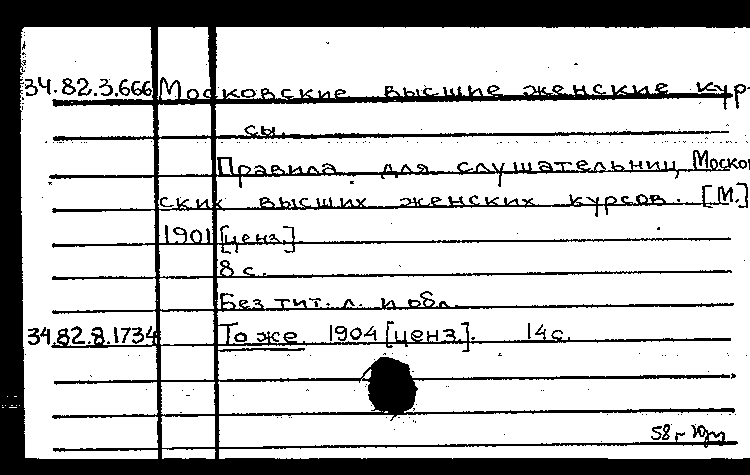 34.82.3.666 Московские высшие женские кур-
сы.
Правила для слушательниц Москов
ских высших женских курсов. [М.]
1901 [ценз.].
8 с.
Без тит. л. и обл.
34.82.8.1734 То же. 1904 [ценз.]. 14 с.
58 г.